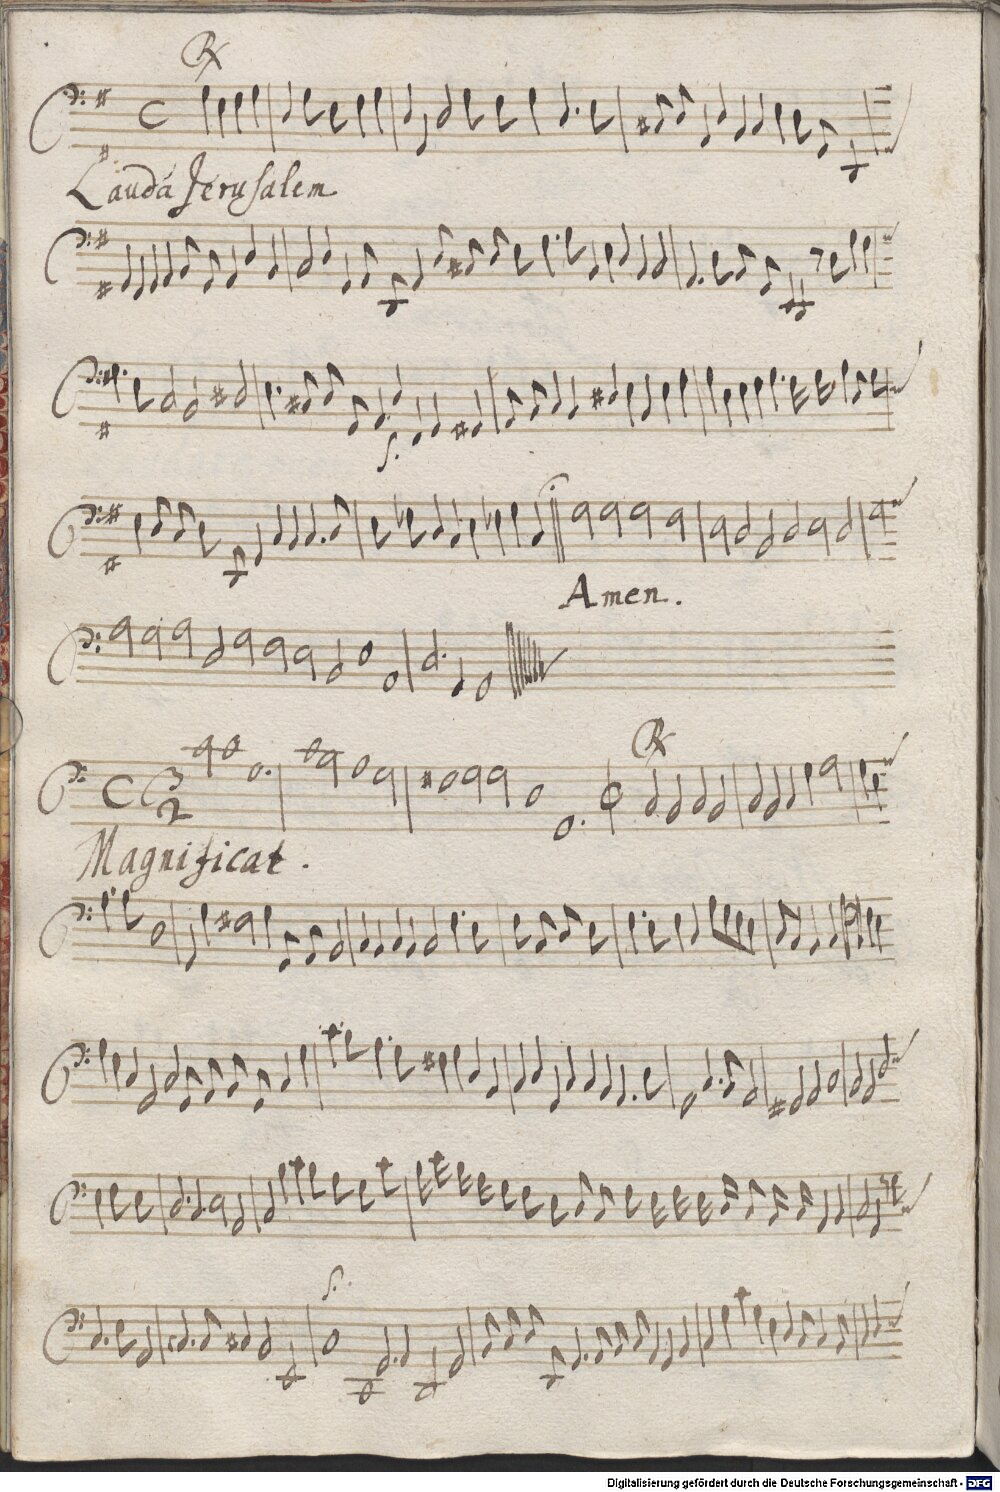 Lauda Jerusalem
Amen.
Magnificat.
Digitalisierung gefördert durch die Deutsche Forschungsgemeinschaft - DFG